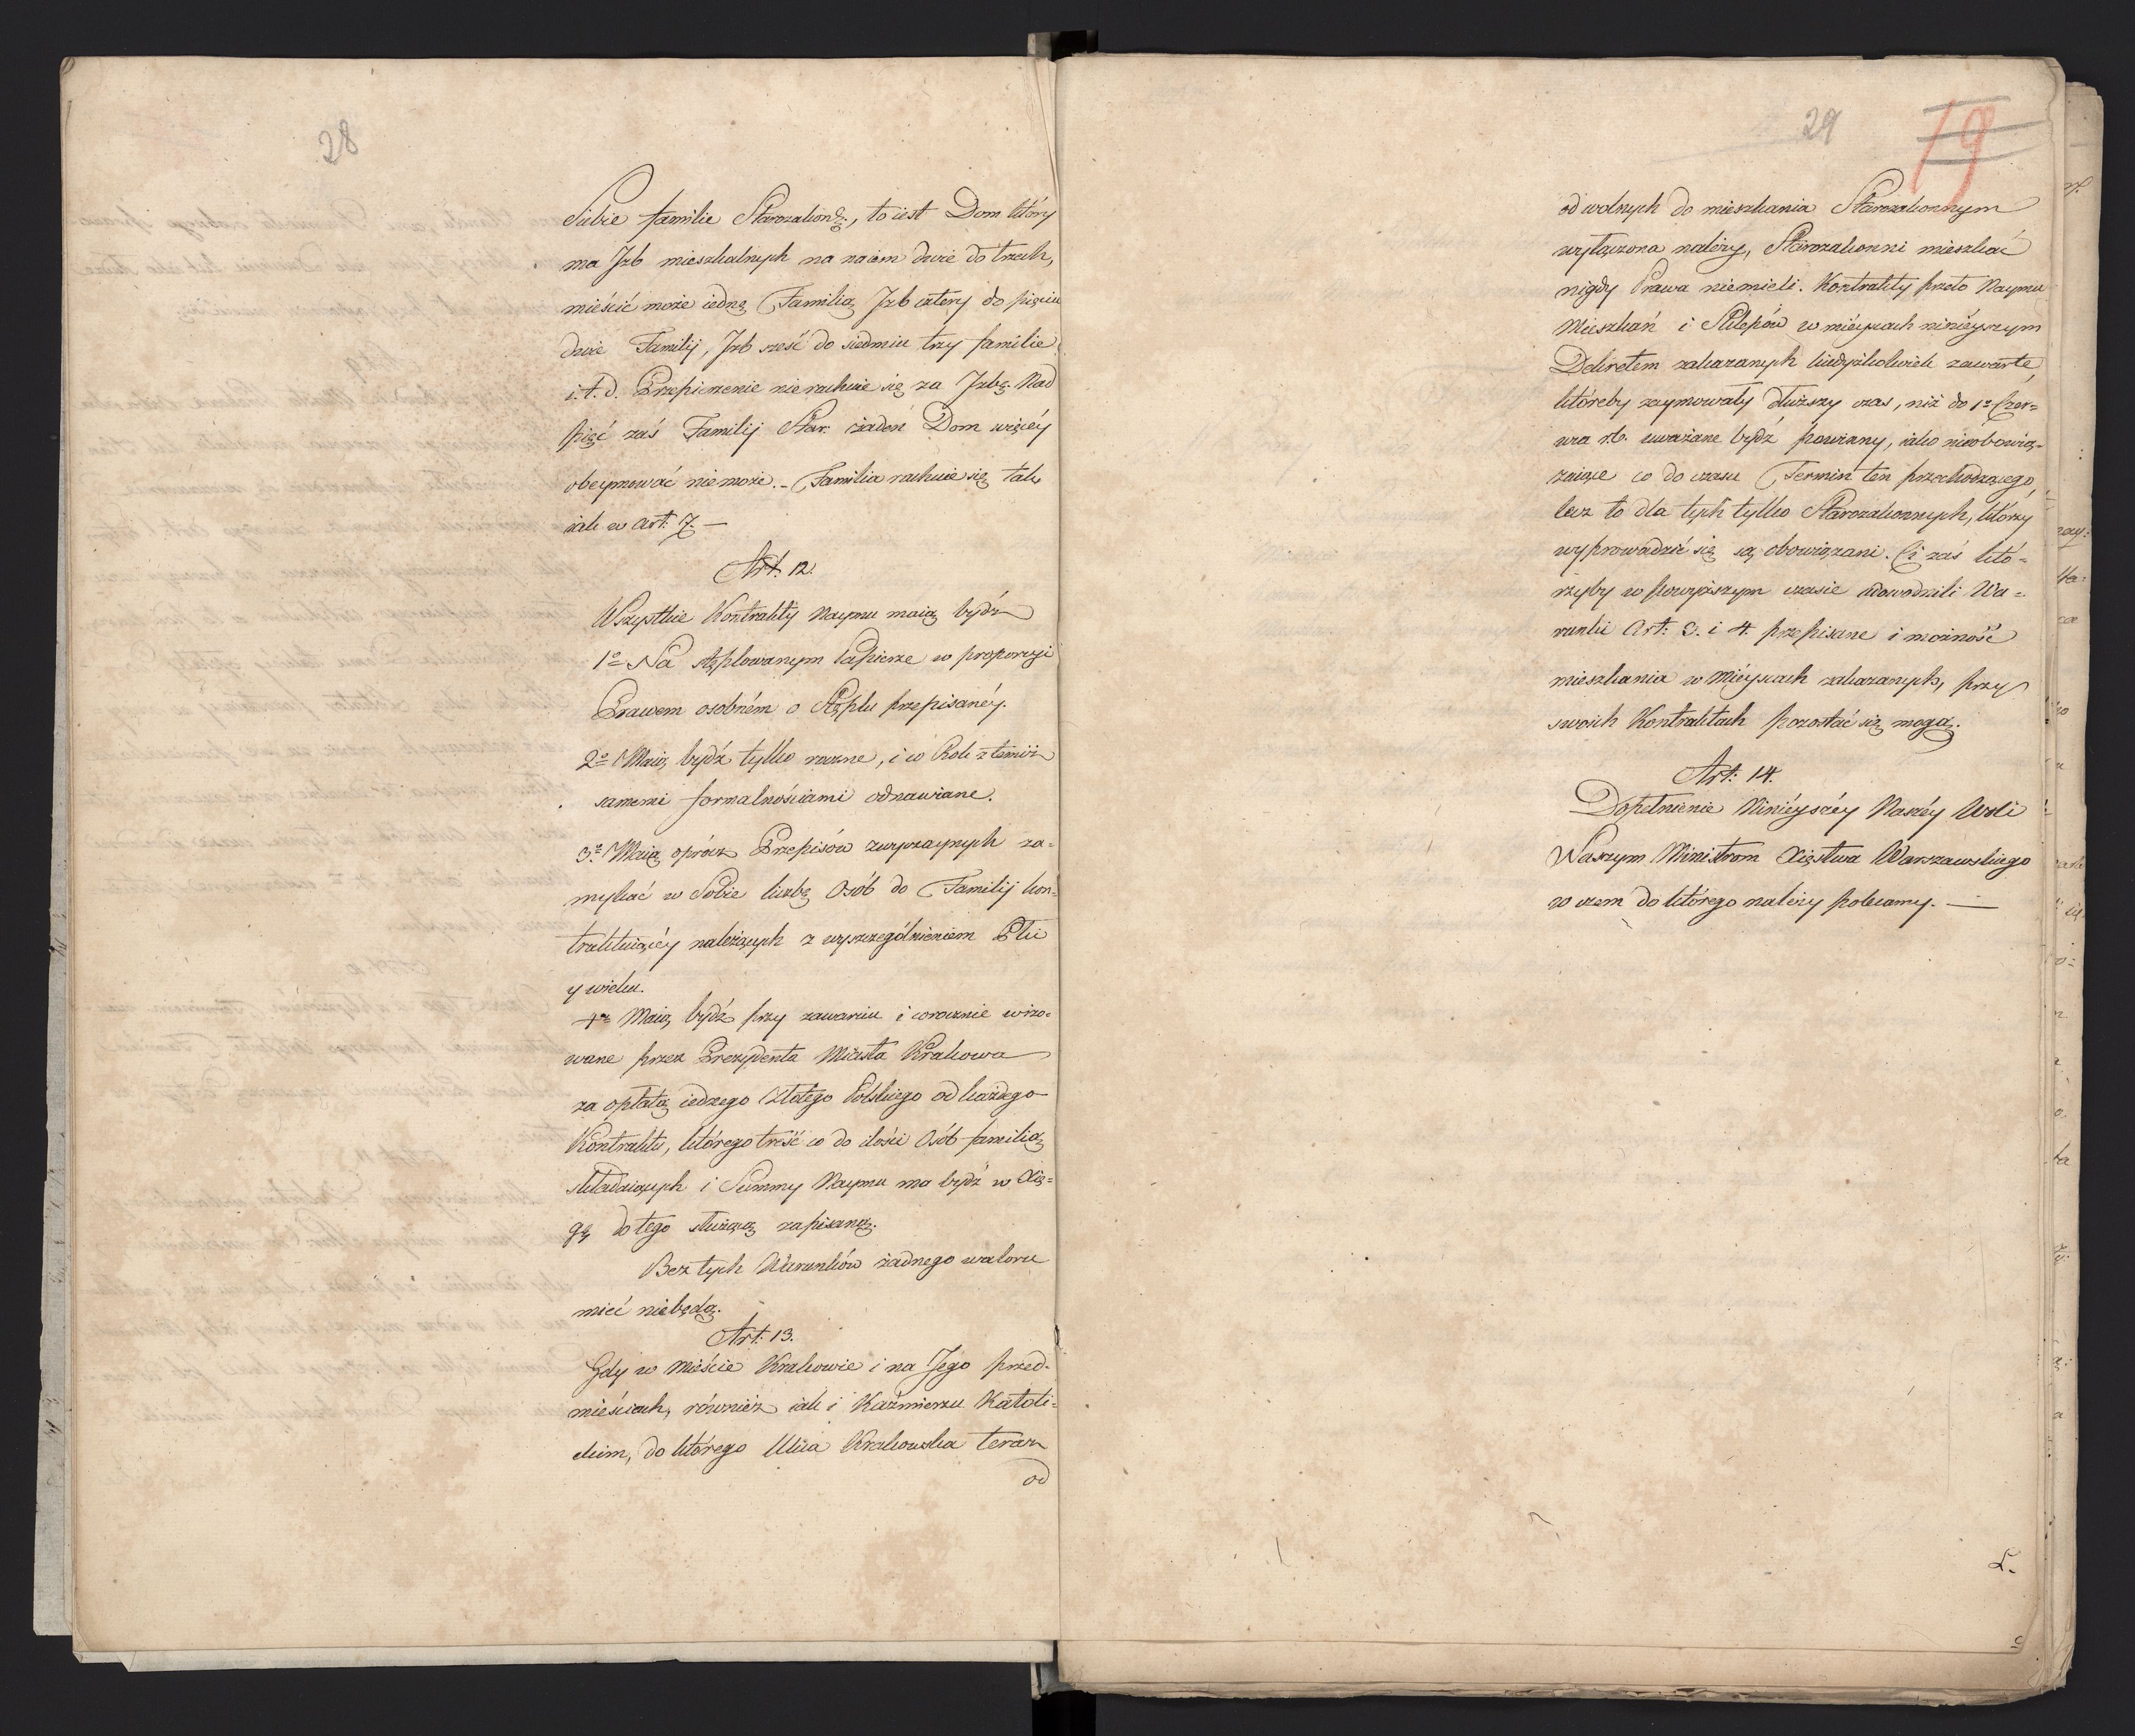 28
Sobie familie Starozakon:, to iest Dom który
ma Jzb mieszkalnych na naiem dwie do trzech,
mieścić może iednę Familią Jzb cztery do pięciu
dwie Familij, Jzb sześć do siedmiu trzy familie
i. t. d. Przepierzenie nierachuie się za Jzbę. Nad
pięć zaś Familij Star: żaden Dom więcéy
obeymować niemoże. – Familia rachuie się tak
iak w Art: 7. –
Art: 12.
Wszystkie Kontrakty Naymu maią bydź
1o Na stęplowanym Papierze w proporcyi
Prawem osobném o Stęplu przepisanéy.
2o Maią bydź tylko roczne, i co Rok z temiż
samemi formalnościami odnawiane.
3o Maią oprócz Przepisów zwyczaynych za-
mykać w Sobie liczbę Osób do Familij kon-
traktuiącéy należących z wyszczególnieniem Płci
y wieku.
4o Maią bydź przy zawarciu i corocznie wizo-
wane przez Prezydenta Miasta Krakowa
za opłatą iednego Złotego Polskiego od każdego
Kontraktu, którego treść co do ilości Osób familią
składaiących i Summy Naymu ma bydź w Xię-
gę do tego służącą zapisaną.
Bez tych Warunków żadnego waloru
mieć niebędą.
Art: 13.
Gdy w Mieście Krakowie i na Jego przed-
mieściach, również iak i Kaźmierzu Katoli-
ckim, do którego Ulica Krakowska teraz
od
29
19
od wolnych do mieszkania Starozakonnym
wyłączona należy, Starozakonni mieszkać
nigdy Prawa niemieli. Kontrakty przeto Naymu
Mieszkań i Sklepów w mieyscach ninieyszym
Dekretem zakazanych kiedyżkolwiek zawarte,
któreby zaymowały dłuższy czas, niż do 1o Czer=
wca r.b. uważane bydź powinny, iako nieobowią-
zuiące co do czasu Termin ten przechodzącego,
lecz to dla tych tylko Starozakonnych, którzy
wyprowadzić się są obowiązani. Ci zaś któ-
rzyby w powyższym czasie udowodnili Wa-
runki Art: 3. i 4. przepisane i możność
mieszkania w Mieyscach zakazanych, przy
swoich Kontraktach pozostać się mogą.
Art: 14.
Dopełnienie Ninieyszéy Naszéy Woli
Naszym Ministrom Xięstwa Warszawskiego
w czem do którego należy polecamy. —
L.